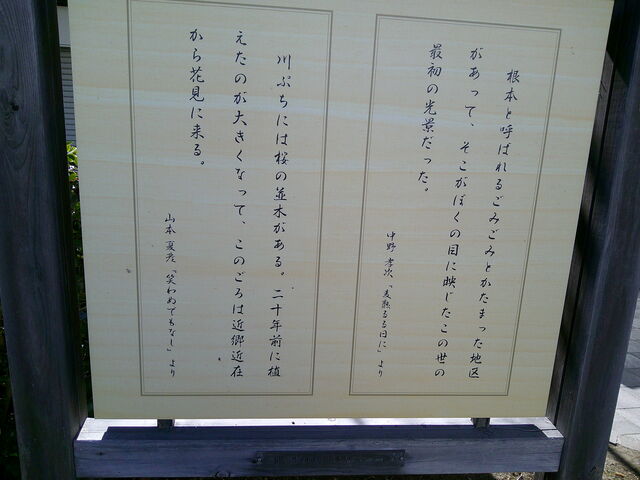 根本と呼ばれるごみごみとかたまった地区
があって、そこがぼくの目に映じたこの世の
最初の光景だった。
中野孝次「麦熟るる日に」より
川ぶちには桜の並木がある。二十年前に植
えたのが大きくなって、このごろは近郷近在
から花見に来る。
山本夏彦「笑わぬでもなし」より